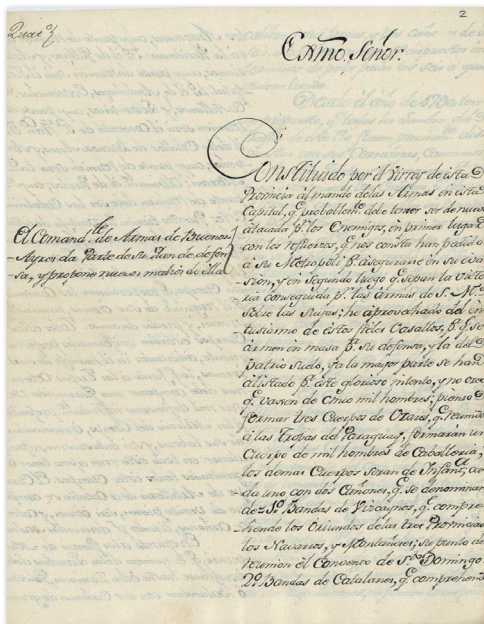 2
Exmo. Señor.
El Comand.te de Armas de Buenos
Ayres da Parte de su Plan de defen-
sa, y propone nuevos medios de ella
Constituido por el Virrey de esta
Provincia al mando de las Armas en esta
Capital, q.e probablem.te debe temer ser de nuevo
atacada p.r los Enemigos, en primer lugar
con los refuerzos, q.e nos consta han pedido
a su Metropoli p.a asegurarse en su
y en segundo luego q.e sepan la victo-
ria conseguida p.r las armas de S. M.
sobre las suyas; he aprovechado del en-
tusiasmo de estos fieles Vasallos, p.a q.e se
armen en masa p.a su defensa, y la del
Patrio suelo, ya la mayor parte se han
alistado p.a este glorioso intento, y no creo
q.e vaxen de Cinco mil hombres; pienso
formar tres Cuerpos de Usares, q.e reunidos
a las Tropas del Paraguay, formarán un
Cuerpo de mil hombres de Caballeria,
los demas Cuerpos seran de Infant.a ca-
da uno con dos Cañones, q.e se denominan
1.º Bandas de Vizcaynos, q.e compre-
hende los Oriundos de las tres Provincias
los Navarros, y Montañeses; su punto de
reunion el Convento de S.to Domingo
2.º Bandas de Catalanes, q.e comprehend